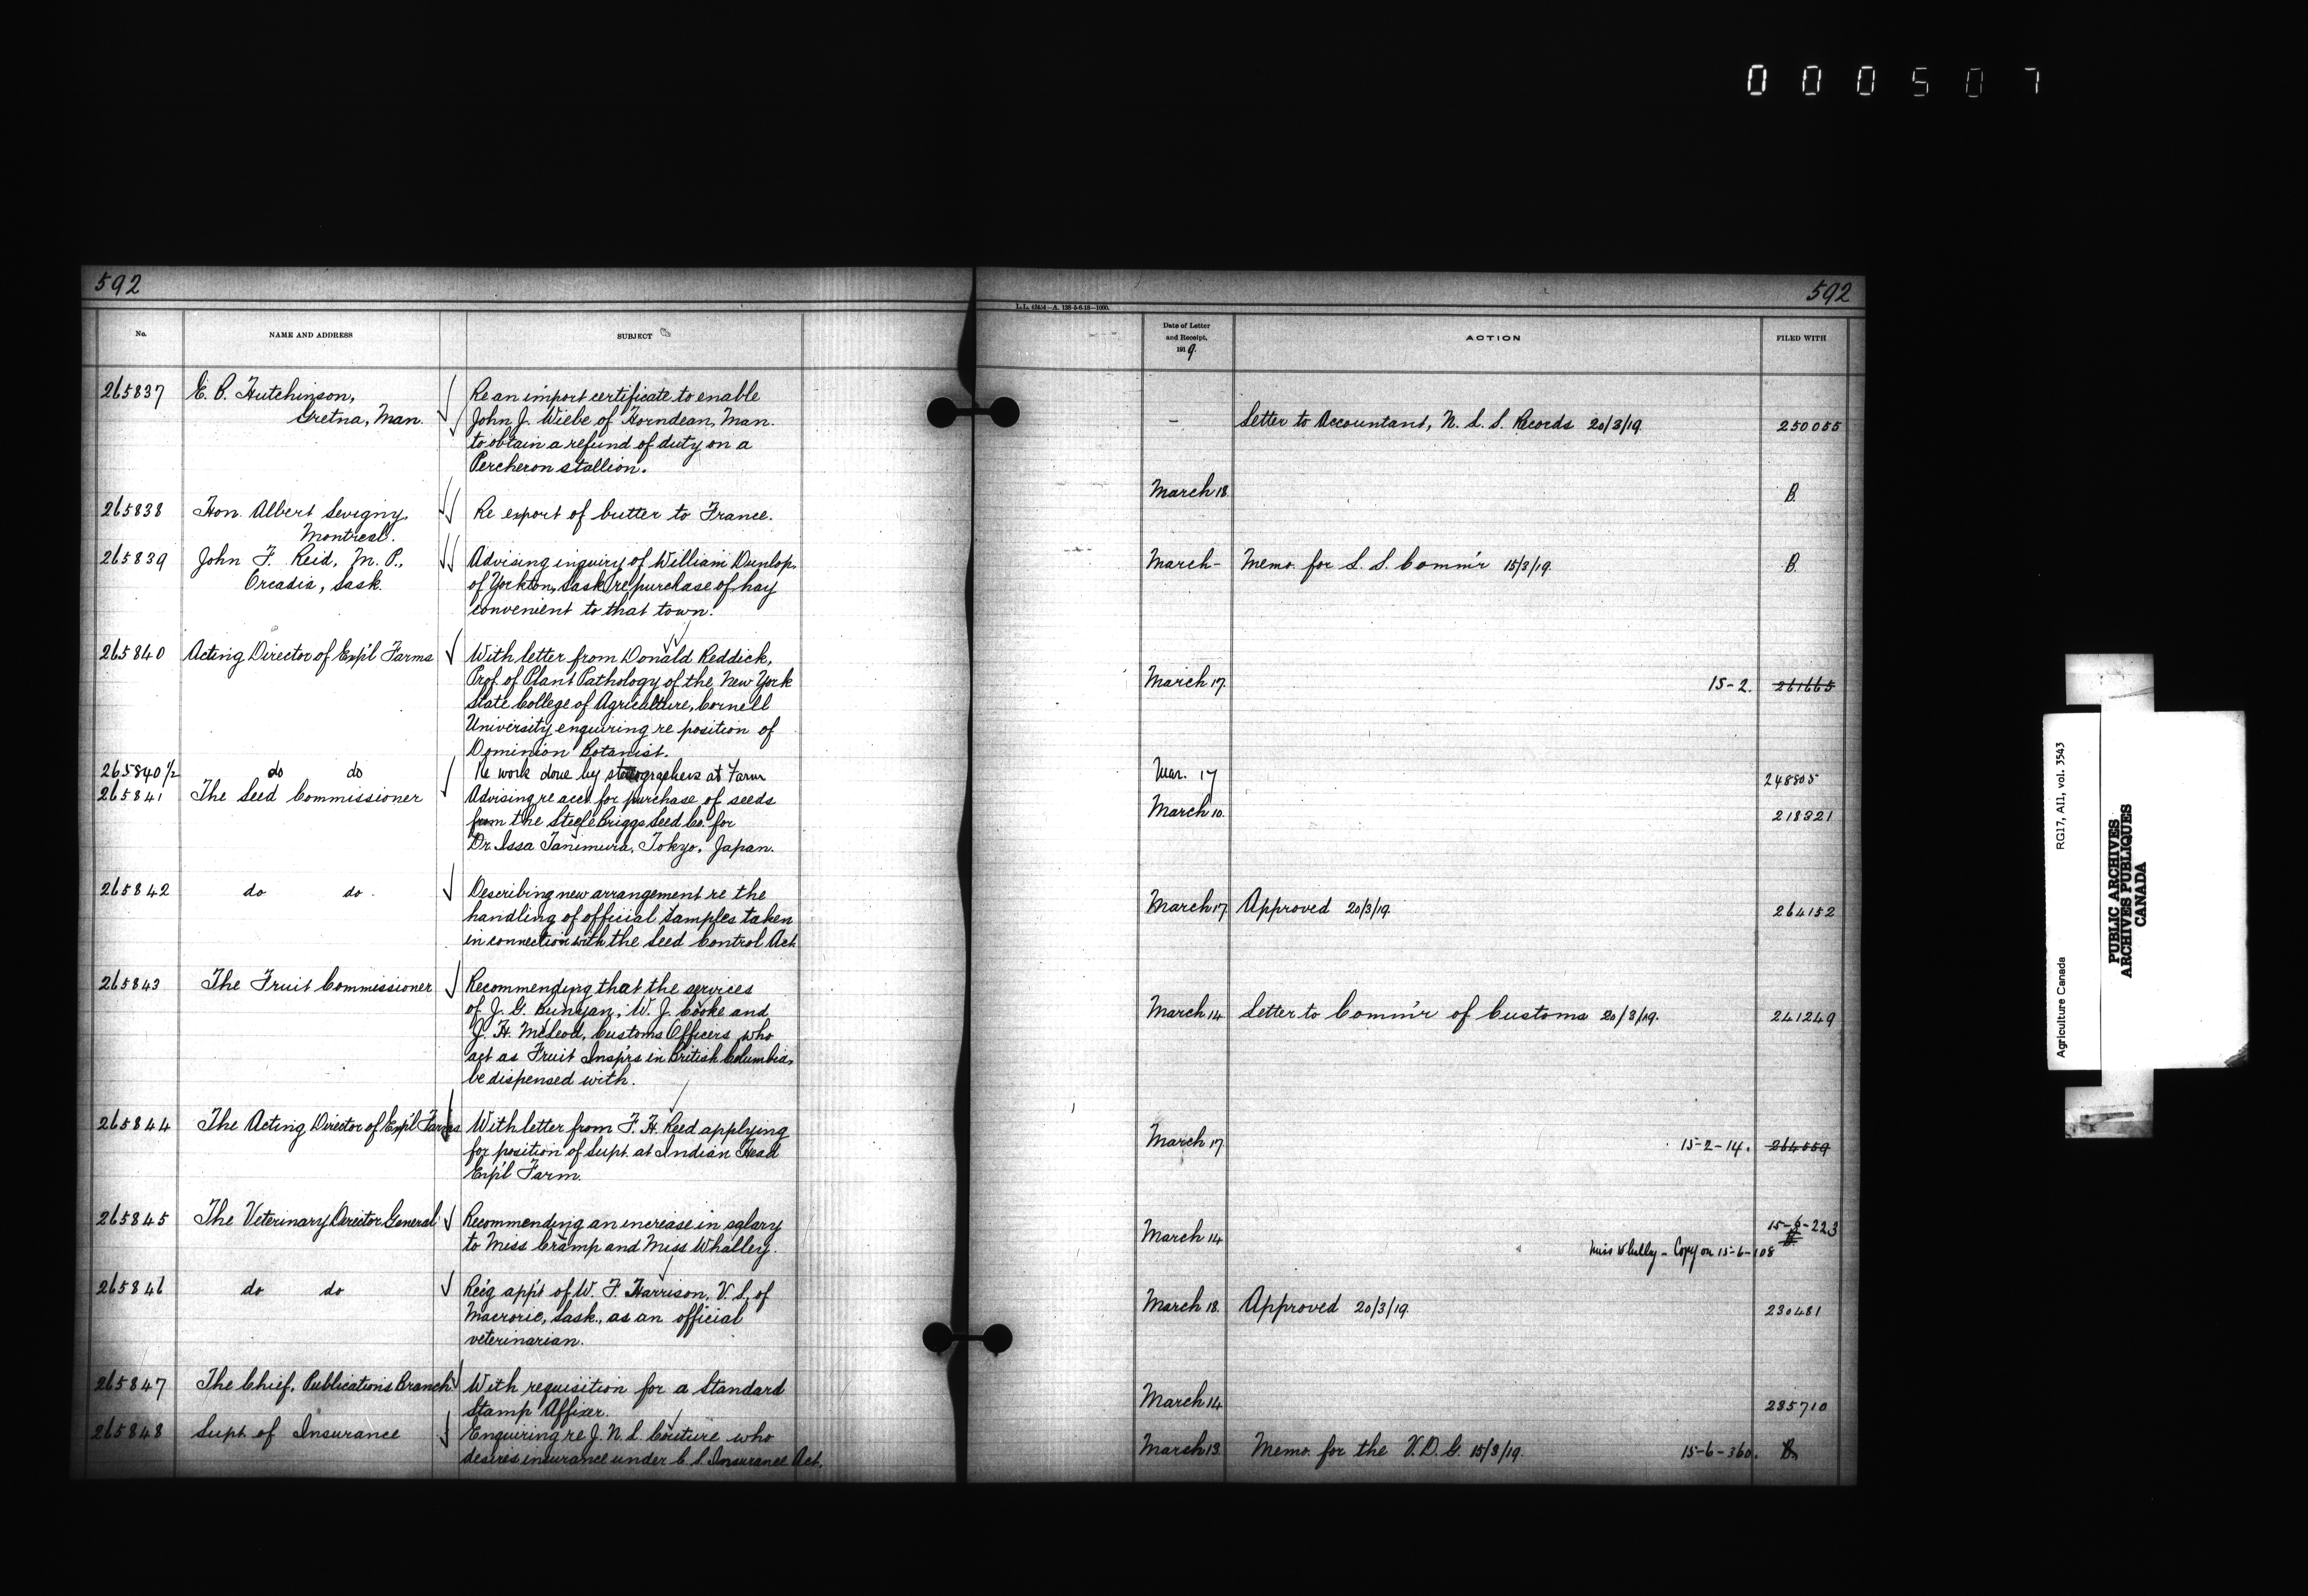 0 0 0 5 0 7
592
592
L.L. 42854—A. 128-5-6-18—1000.
No.
NAME AND ADDRESS
SUBJECT
Date of Letter
and Receipt,
1919.
ACTION
FILED WITH
265837 E. B. Hutchinson, Re an import certificate to enable
Gretna, Man. John J. Wiebe of Horndean, Man. - Letter to Accountant, N. L. S. Records 20/3/19. 250055
to obtain a refund of duty on a
Percheron stallion.
265838 Hon. Albert Sevigny, Re export of butter to France. March 18. B.
Montreal.
265839 John F. Reid, M. P., Advising inquiry of William Dunlop, March - Memo. for L. S. Comm'r 15/3/19. B.
Orcadia, Sask. of Yorkton, Sask. re purchase of hay
convenient to that town.
265840 Acting Director of Exp'l Farms With letter from Donald Reddick,
Prof. of Plant Pathology of the New York March 17. 15-2. 261665
State College of Agriculture, Cornell
University enquiring re position of
Dominion Botanist.
265840 1/2 do do Re work done by stenographers at Farm Mar. 17 248805
265841 The Seed Commissioner Advising re acct. for purchase of seeds March 10. 218321
from the Steele Briggs Seed Co. for
Dr. Issa Tanimura, Tokyo, Japan.
265842 do do. Describing new arrangement re the
handling of official samples taken March 17. Approved 20/3/19. 264152
in connection with the Seed Control Act.
265843 The Fruit Commissioner Recommending that the services
of J. G. Bunyan, W. J. Cooke and March 14 Letter to Comm'r of Customs 20/3/19. 241249
J. H. McLeod, Customs Officers who
act as Fruit Insp'rs in British Columbia,
be dispensed with.
265844 The Acting Director of Exp'l Farms With letter from F. H. Reed applying
for position of Supt. at Indian Head March 17. 15-2-14. 264559
Exp'l Farm.
265845 The Veterinary Director General Recommending an increase in salary March 14 15-6-223
to Miss Cramp and Miss Whalley. Miss Whally - Copy on 15-6-108
265846 do do Re'g app't of W. F. Harrison, V. S. of
Macrorie, Sask., as an official March 18. Approved 20/3/19. 230481
veterinarian.
265847 The Chief, Publications Branch With requisition for a Standard March 14. 235710
Stamp Affixer.
265848 Supt. of Insurance Enquiring re J. N. L. Couture who March 13. Memo. for the V. D. G. 15/3/19. 15-6-360. B.
desires insurance under C. S. Insurance Act.
Agriculture Canada RG17, AI1, vol. 3543
PUBLIC ARCHIVES
ARCHIVES PUBLIQUES
CANADA